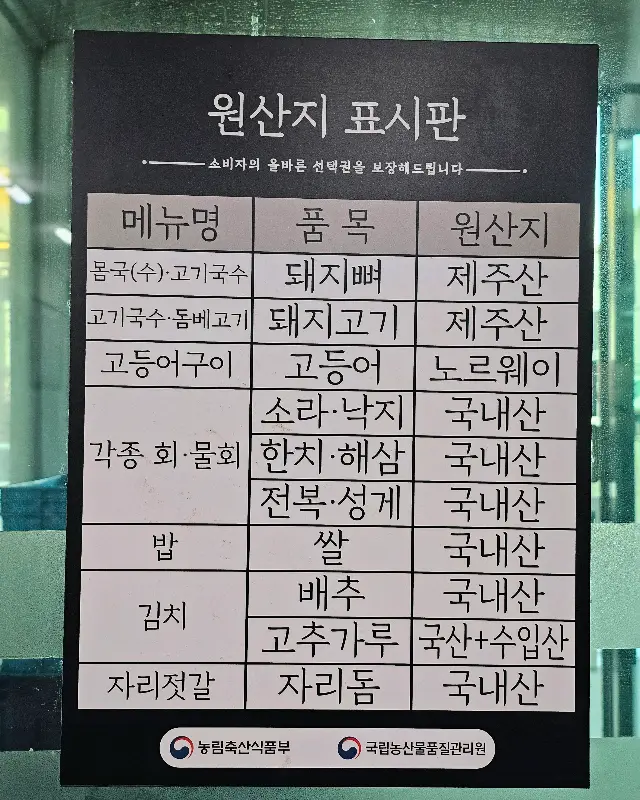 원산지 표시판
소비자의 올바른 선택권을 보장해드립니다
메뉴명 품목 원산지
몸국(수)·고기국수 돼지뼈 제주산
고기국수·돔베고기 돼지고기 제주산
고등어구이 고등어 노르웨이
각종 회·물회 소라·낙지 국내산
한치·해삼 국내산
전복·성게 국내산
밥 쌀 국내산
김치 배추 국내산
고추가루 국산+수입산
자리젓갈 자리돔 국내산
농림축산식품부 국립농산물품질관리원